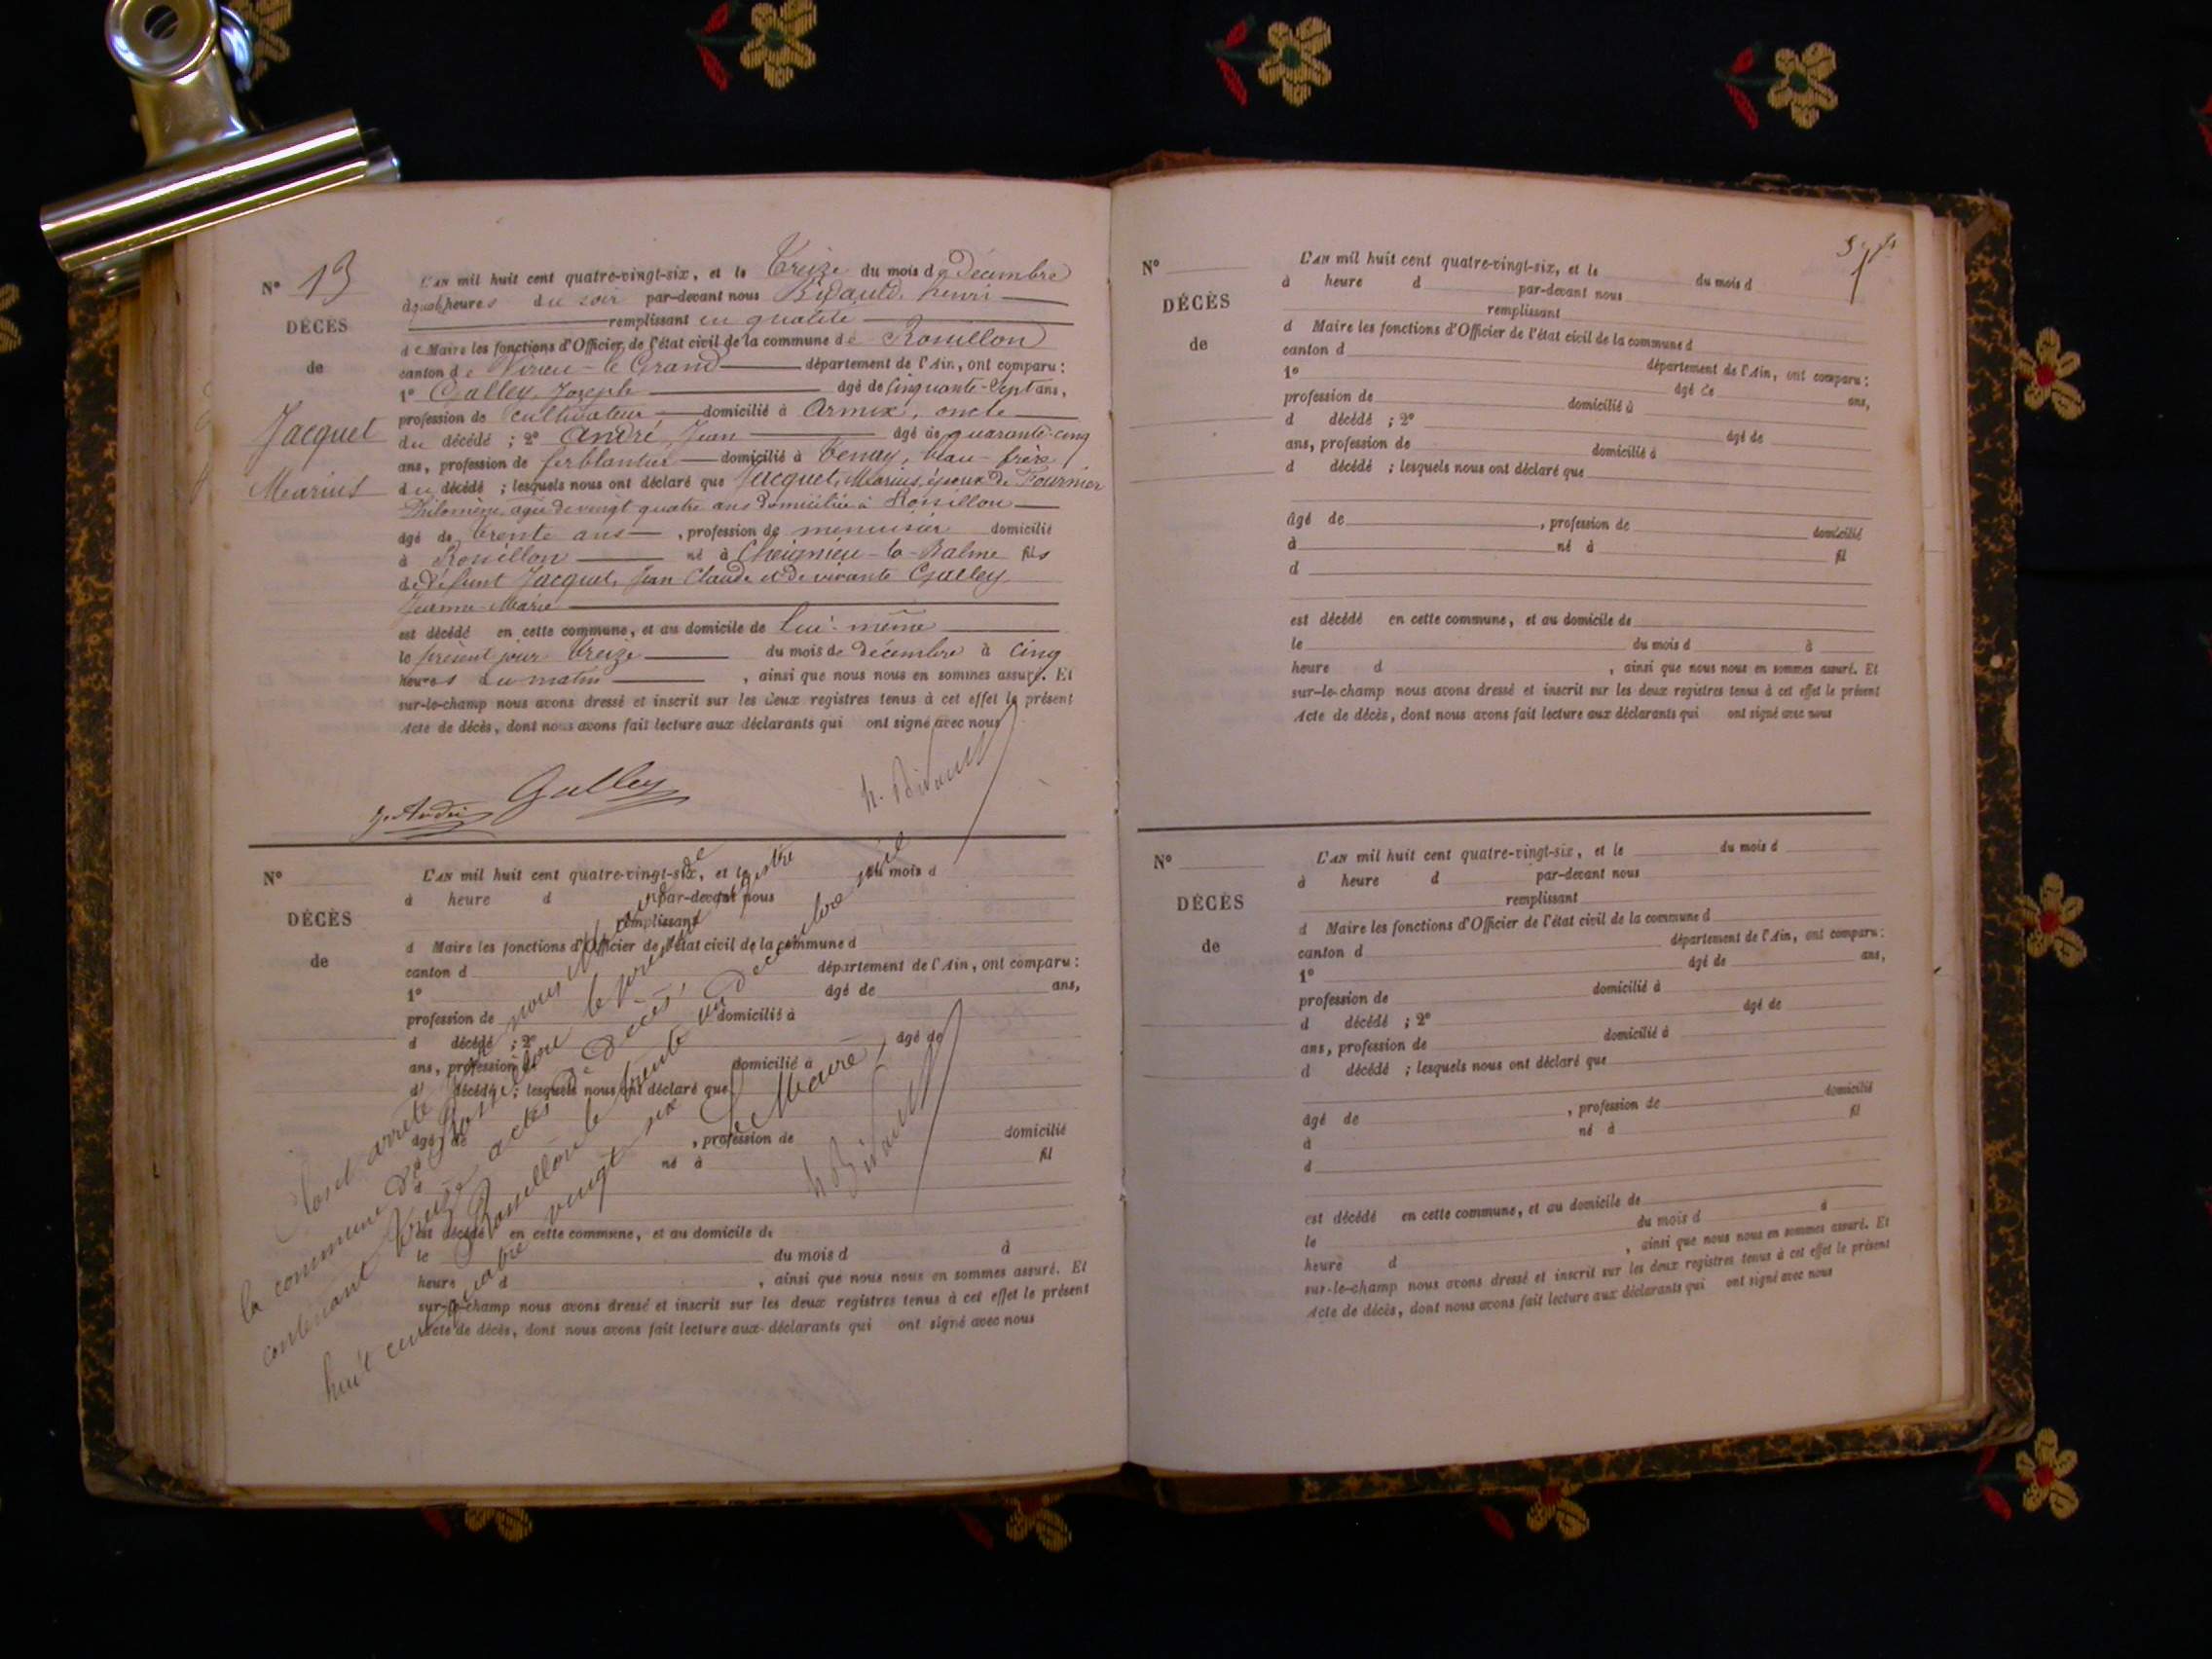 N° 13
DÉCÈS
de
Jacquet
Marius
L'AN mil huit cent quatre-vingt-six, et le Treize du mois de Décembre
à quat heures du soir par-devant nous Bidauld, henri
remplissant en qualité
de Maire les fonctions d'Officier de l'état civil de la commune de Rossillon
canton de Virieu-le-Grand département de l'Ain, ont comparu :
1° Galley, Joseph âgé de Cinquante-Sept ans,
profession de Cultivateur domicilié à Armix, oncle
du décédé ; 2° André, Jean âgé de quarante-cinq
ans, profession de ferblantier domicilié à Tenay, beau-frère
du décédé ; lesquels nous ont déclaré que Jacquet, Marius, époux de Fournier
Philomène, agée de vingt quatre ans domiciliée à Rossillon
âgé de trente ans , profession de menuisier domicilié
à Rossillon né à Cheignieu-la-Balme fils
de défunt Jacquet, Jean Claude et de vivante Galley
Jeanne-Marie
est décédé en cette commune, et au domicile de lui-même
le présent jour treize du mois de décembre à Cinq
heures du matin , ainsi que nous nous en sommes assuré. Et
sur-le-champ nous avons dressé et inscrit sur les deux registres tenus à cet effet le présent
Acte de décès, dont nous avons fait lecture aux déclarants qui ont signé avec nous
J. André Galley h. Bidauld
N°
DÉCÈS
de
L'AN mil huit cent quatre-vingt-six, et le du mois d
à heure d par-devant nous
remplissant
d Maire les fonctions d'Officier de l'état civil de la commune d
canton d département de l'Ain, ont comparu :
1° âgé de ans,
profession de domicilié à
d décédé ; 2° âgé de
ans, profession de domicilié à
d décédé ; lesquels nous ont déclaré que
âgé de , profession de domicilié
à né à fil
d
est décédé en cette commune, et au domicile de
le du mois d à
heure d , ainsi que nous nous en sommes assuré. Et
sur-le-champ nous avons dressé et inscrit sur les deux registres tenus à cet effet le présent
Acte de décès, dont nous avons fait lecture aux déclarants qui ont signé avec nous
Clos et arrêté par nous Maire de
la commune de Rossillon le présent registre
contenant treize actes de décès,
Rossillon le trente un Décembre mil
huit cent quatre vingt six
Le Maire,
h Bidauld
N°
DÉCÈS
de
L'AN mil huit cent quatre-vingt-six, et le du mois d
à heure d par-devant nous
remplissant
d Maire les fonctions d'Officier de l'état civil de la commune d
canton d département de l'Ain, ont comparu :
1° âgé de ans,
profession de domicilié à
d décédé ; 2° âgé de
ans, profession de domicilié à
d décédé ; lesquels nous ont déclaré que
âgé de , profession de domicilié
à né à fil
d
est décédé en cette commune, et au domicile de
le du mois d à
heure d , ainsi que nous nous en sommes assuré. Et
sur-le-champ nous avons dressé et inscrit sur les deux registres tenus à cet effet le présent
Acte de décès, dont nous avons fait lecture aux déclarants qui ont signé avec nous
N°
DÉCÈS
de
L'AN mil huit cent quatre-vingt-six, et le du mois d
à heure d par-devant nous
remplissant
d Maire les fonctions d'Officier de l'état civil de la commune d
canton d département de l'Ain, ont comparu :
1° âgé de ans,
profession de domicilié à
d décédé ; 2° âgé de
ans, profession de domicilié à
d décédé ; lesquels nous ont déclaré que
âgé de , profession de domicilié
à né à fil
d
est décédé en cette commune, et au domicile de
le du mois d à
heure d , ainsi que nous nous en sommes assuré. Et
sur-le-champ nous avons dressé et inscrit sur les deux registres tenus à cet effet le présent
Acte de décès, dont nous avons fait lecture aux déclarants qui ont signé avec nous